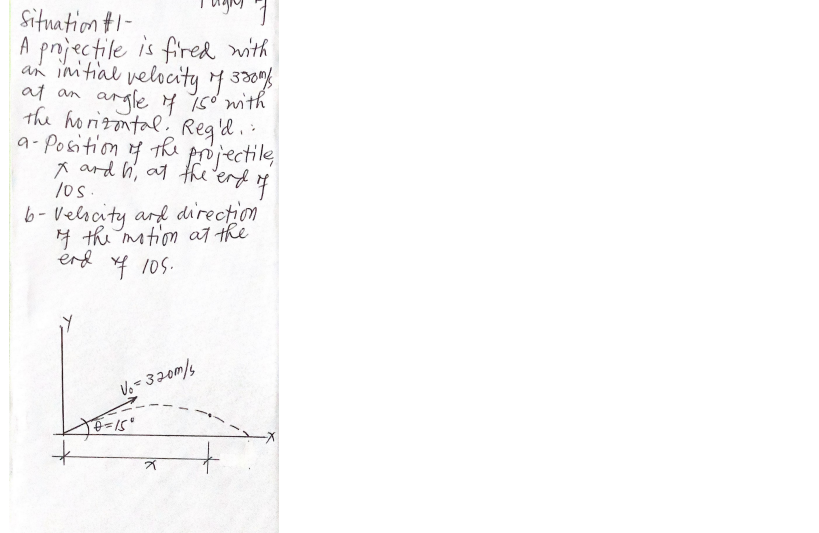 Situation #1-
A projectile is fired with
an initial velocity of 320m/s
at an angle of 15° with
the horizontal. Req'd.:
a- Position of the projectile,
x and h, at the end of
10s.
b- Velocity and direction
of the motion at the
end of 10s.
Y
V₀ = 320m/s
θ=15°
X
x